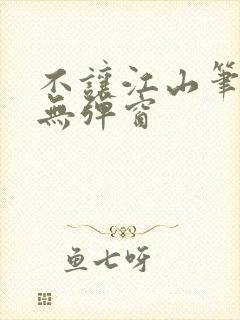 不讓江山筆
無彈窗
鱼七呀